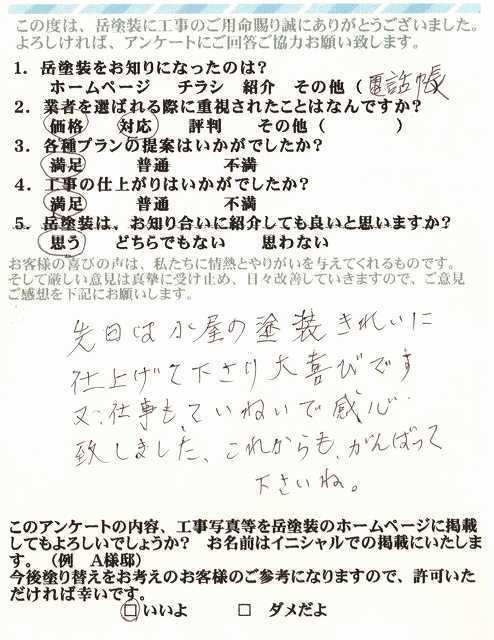 この度は、岳塗装に工事のご用命賜り誠にありがとうございました。
よろしければ、アンケートにご回答ご協力お願い致します。
1．岳塗装をお知りになったのは？
ホームページ　チラシ　紹介　その他（電話帳
2．業者を選ばれる際に重視されたことはなんですか？
価格　対応　評判　その他（　　　）
3．各種プランの提案はいかがでしたか？
満足　普通　不満
4．工事の仕上がりはいかがでしたか？
満足　普通　不満
5．岳塗装は、お知り合いに紹介しても良いと思いますか？
思う　どちらでもない　思わない
お客様の喜びの声は、私たちに情熱とやりがいを与えてくれるものです。
そして厳しい意見は真摯に受け止め、日々改善していきますので、ご意見
ご感想を下記にお願いします。
先日は小屋の塗装きれいに
仕上げて下さり大喜びです
又、仕事も、ていねいで感心
致しました、これからも、がんばって
下さいね。
このアンケートの内容、工事写真等を岳塗装のホームページに掲載
してもよろしいでしょうか？　お名前はイニシャルでの掲載にいたしま
す。（例　A様邸）
今後塗り替えをお考えのお客様のご参考になりますので、許可いた
だければ幸いです。
□ いいよ　□ ダメだよ